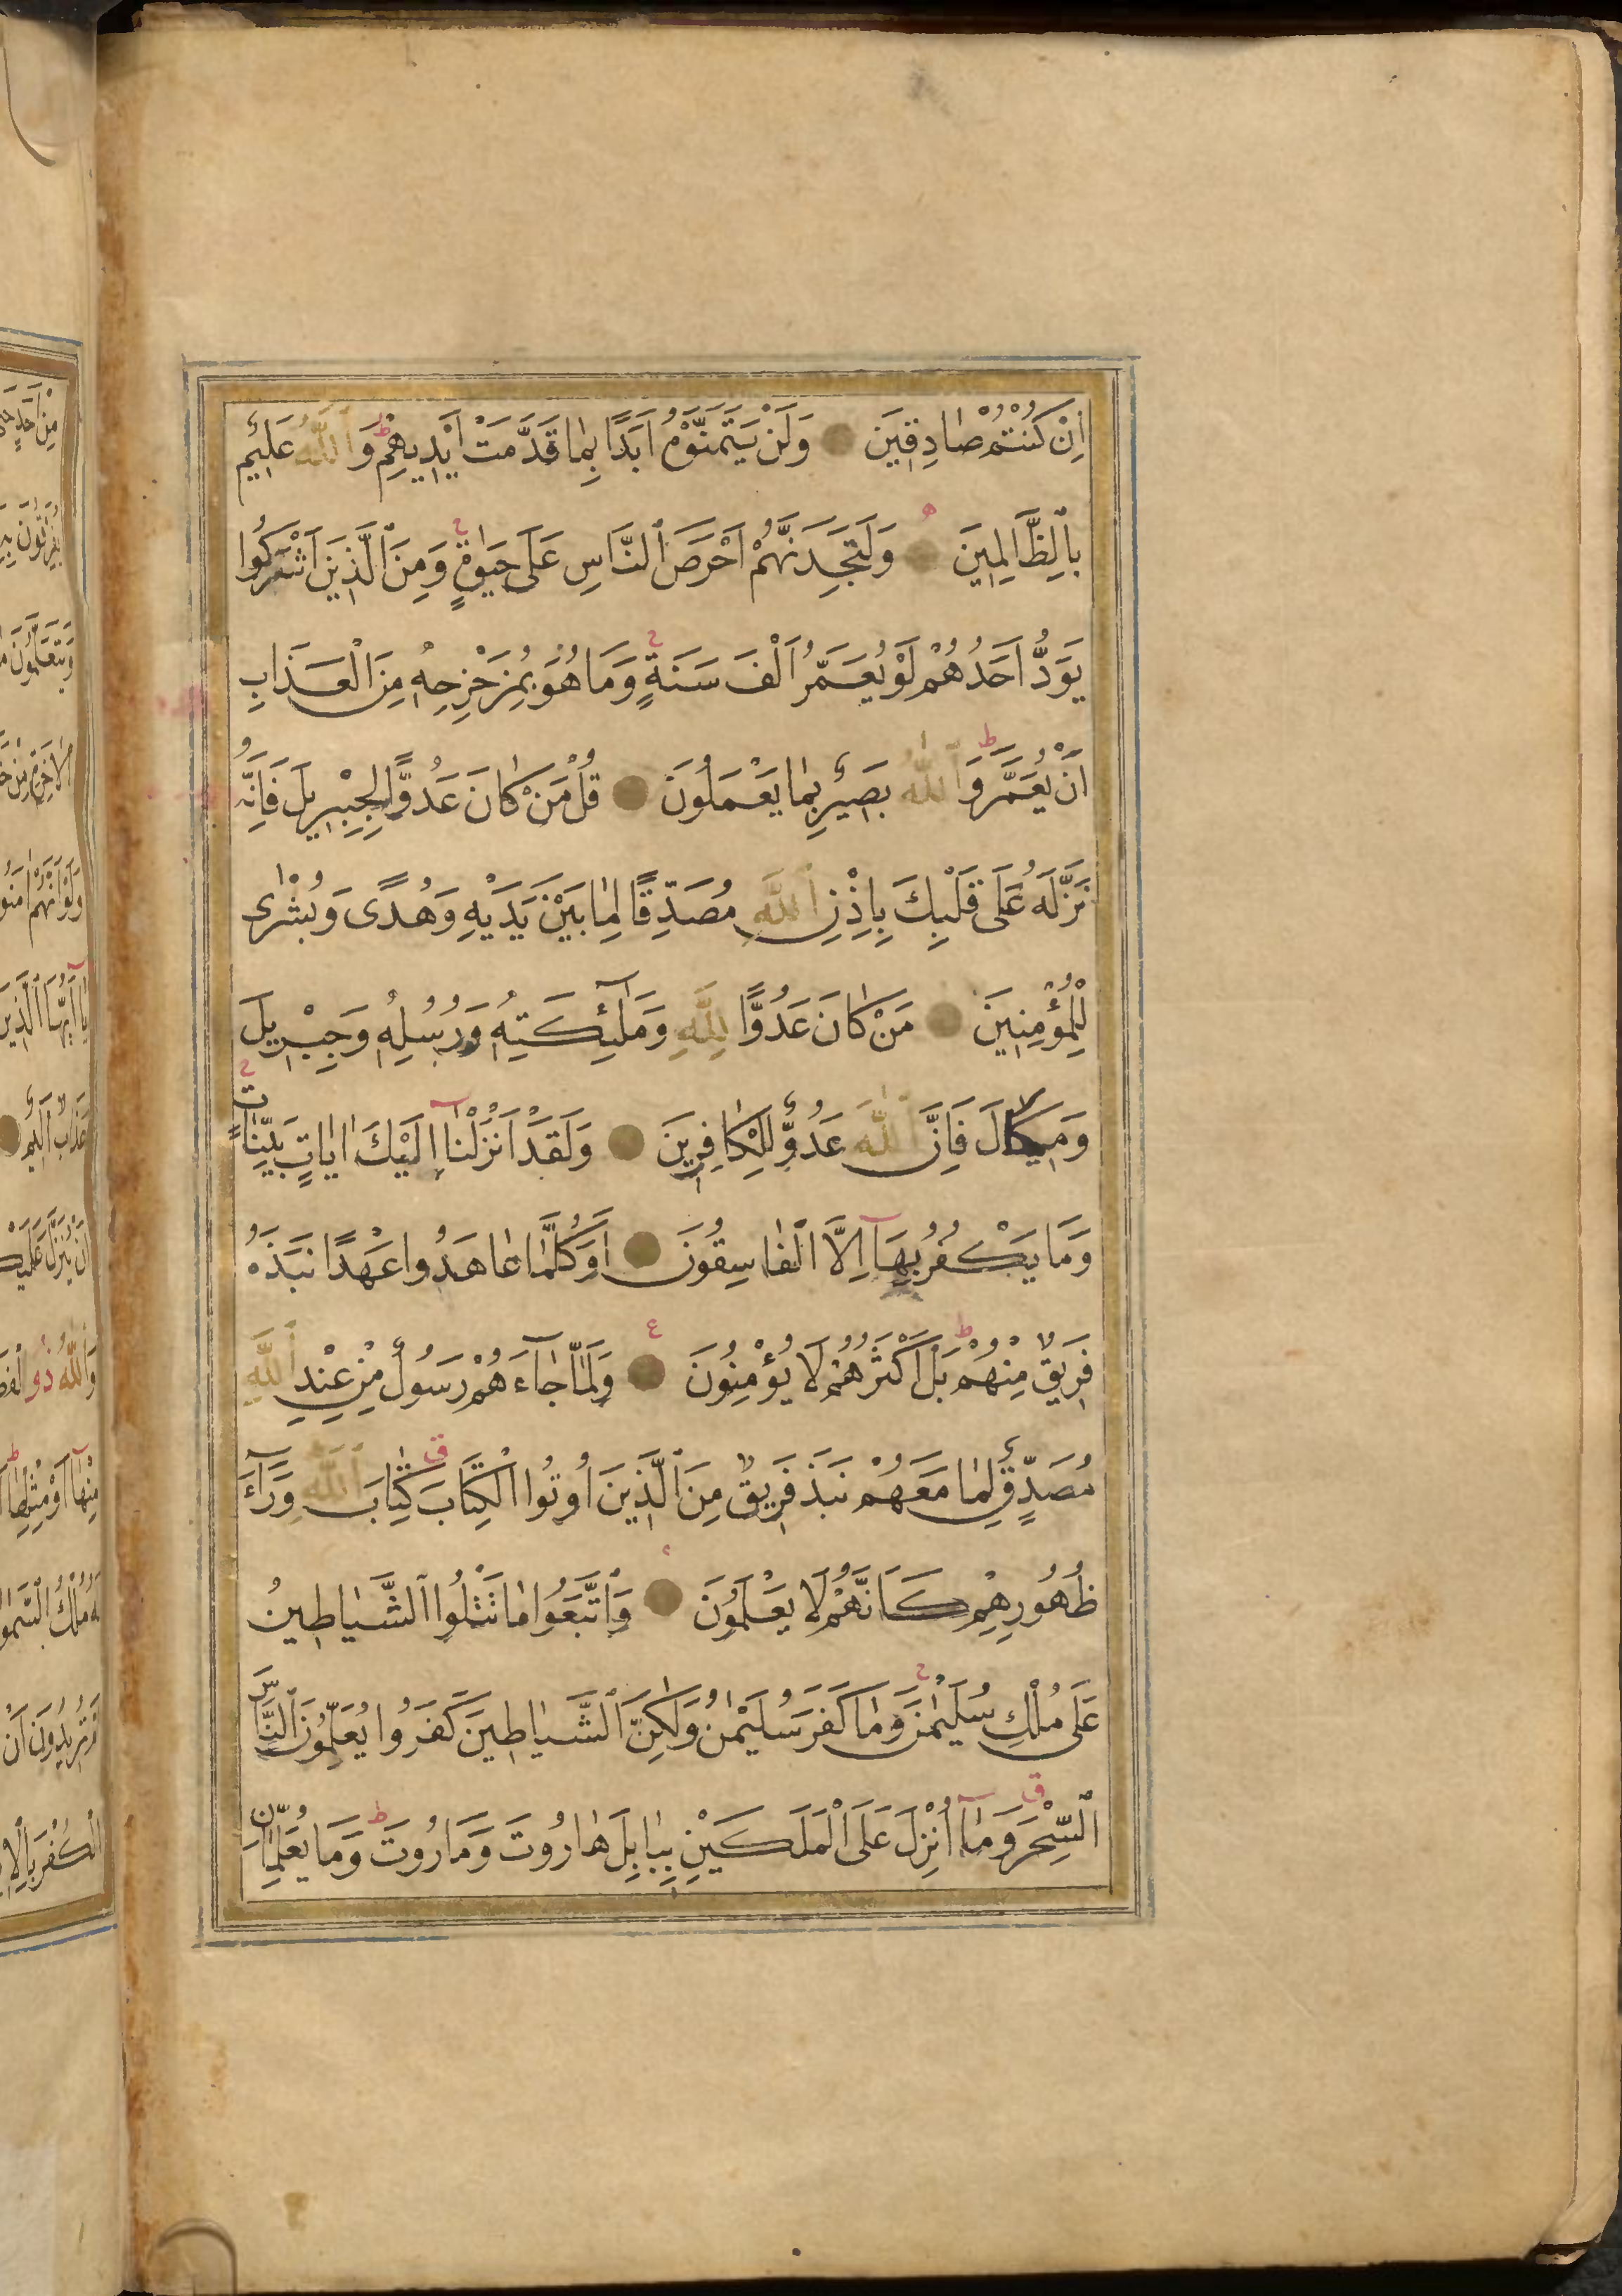 اِنْ كُنْتُمْ صَادِقِينَ وَلَنْ يَتَمَنَّوْهُ اَبَدًا بِمَا قَدَّمَتْ اَيْدِيهِمْ ط وَٱللّٰهُ عَلِيمٌ
بِٱلظَّالِمِينَ وَلَتَجِدَنَّهُمْ اَحْرَصَ ٱلنَّاسِ عَلَى حَيٰوةٍ ج وَمِنَ ٱلَّذِينَ اَشْرَكُوا
يَوَدُّ اَحَدُهُمْ لَوْ يُعَمَّرُ اَلْفَ سَنَةٍ ج وَمَا هُوَ بِمُزَحْزِحِهِ مِنَ الْعَذَابِ
اَنْ يُعَمَّرَ ط وَٱللّٰهُ بَصِيرٌ بِمَا يَعْمَلُونَ قُلْ مَنْ كَانَ عَدُوًّا لِجِبْرِيلَ فَاِنَّهُ
نَزَّلَهُ عَلَى قَلْبِكَ بِاِذْنِ ٱللّٰهِ مُصَدِّقًا لِمَا بَيْنَ يَدَيْهِ وَهُدًى وَبُشْرٰى
لِلْمُؤْمِنِينَ مَنْ كَانَ عَدُوًّا لِلّٰهِ وَمَلٰٓئِكَتِهِ وَرُسُلِهِ وَجِبْرِيلَ
وَمِيكَالَ فَاِنَّ ٱللّٰهَ عَدُوٌّ لِلْكَافِرِينَ وَلَقَدْ اَنْزَلْنَآ اِلَيْكَ اٰيَاتٍ بَيِّنَاتٍ ج
وَمَا يَكْفُرُ بِهَآ اِلَّا الْفَاسِقُونَ اَوَكُلَّمَا عَاهَدُوا عَهْدًا نَبَذَهُ
فَرِيقٌ مِنْهُمْ ط بَلْ اَكْثَرُهُمْ لَا يُؤْمِنُونَ وَلَمَّا جَآءَهُمْ رَسُولٌ مِنْ عِنْدِ ٱللّٰهِ
مُصَدِّقٌ لِمَا مَعَهُمْ نَبَذَ فَرِيقٌ مِنَ ٱلَّذِينَ اُوتُوا الْكِتَابَ ق كِتَابَ ٱللّٰهِ وَرَآءَ
ظُهُورِهِمْ كَاَنَّهُمْ لَا يَعْلَمُونَ وَٱتَّبَعُوا مَا تَتْلُوا ٱلشَّيَاطِينُ
عَلَى مُلْكِ سُلَيْمٰنَ ج وَمَا كَفَرَ سُلَيْمٰنُ وَلٰكِنَّ ٱلشَّيَاطِينَ كَفَرُوا يُعَلِّمُونَ ٱلنَّاسَ
ٱلسِّحْرَ ق وَمَآ اُنْزِلَ عَلَى الْمَلَكَيْنِ بِبَابِلَ هَارُوتَ وَمَارُوتَ ط وَمَا يُعَلِّمَانِ